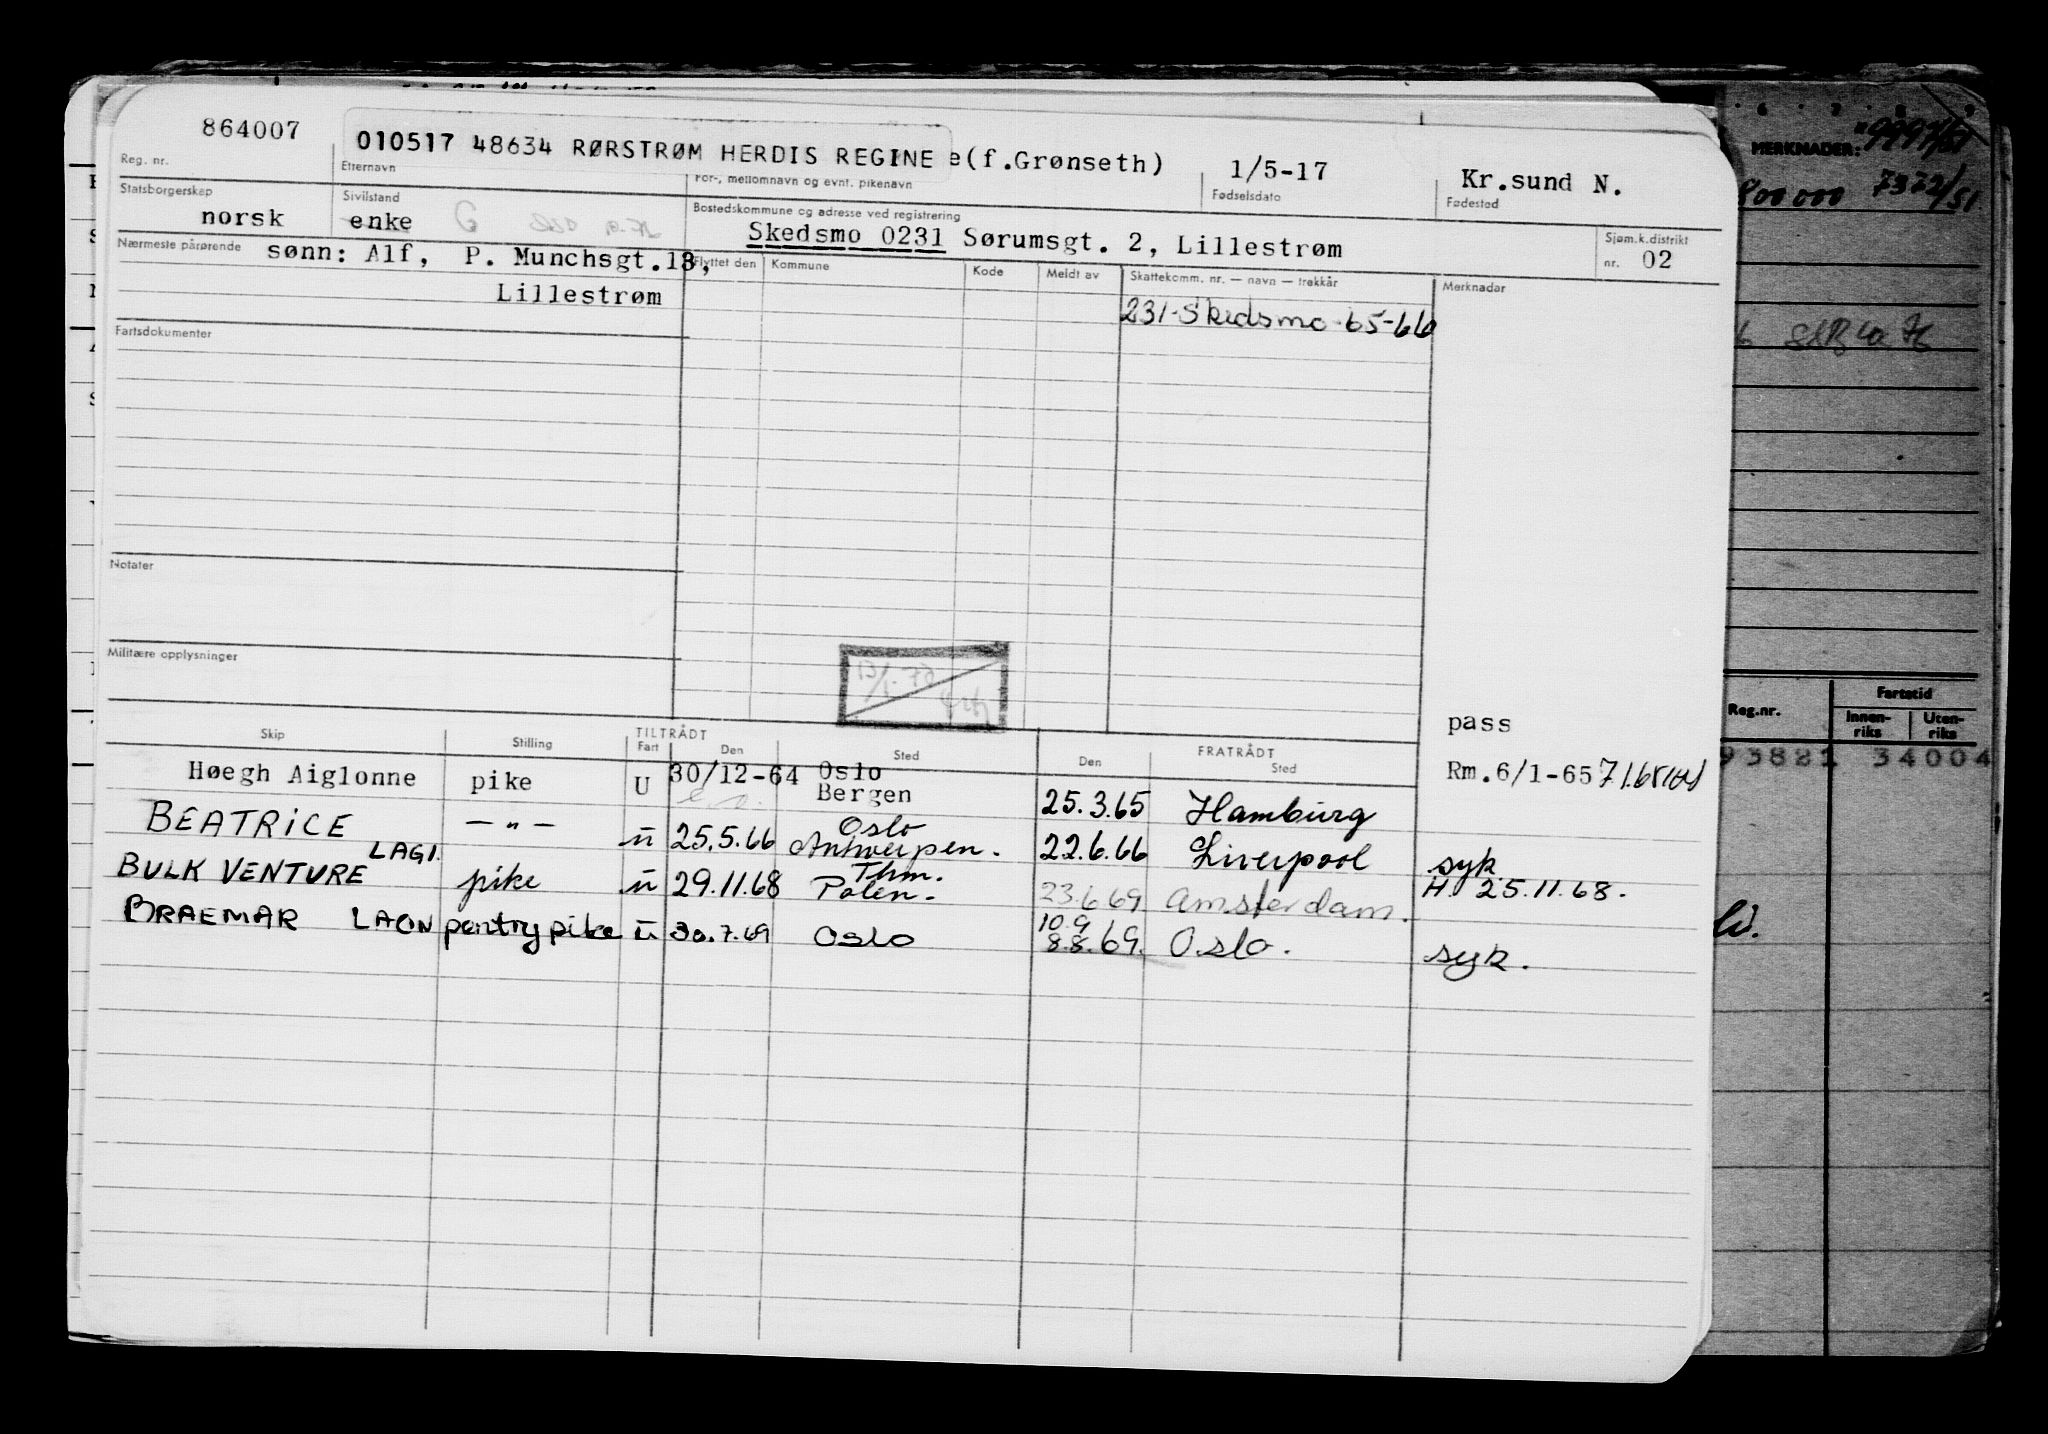 864007
010517 48634 RØRSTRØM HERDIS REGINE e(f.Grønseth)
1/5-17
Kr.sund N.
Reg. nr.
Etternavn
For-, mellomnavn og evnt. pikenavn
Fødselsdato
Fødested
Statsborgerskap
norsk
Sivilstand
enke
G
Bostedskommune og adresse ved registrering
Skedsmo 0231 Sørumsgt. 2, Lillestrøm
Sjøm.k.distrikt
nr. 02
Nærmeste pårørende
sønn: Alf, P. Munchsgt.13,
Lillestrøm
Flyttet den
Kommune
Kode
Meldt av
Skattekomm. nr. — navn — trekkår
Merknader
231-Skedsmo-65-66
Fartsdokumenter
Notater
Militære opplysninger
13/1-70
pass
Skip
Stilling
TILTRÅDT
Fart
Den
Sted
FRATRÅDT
Den
Sted
Høegh Aiglonne pike U 30/12-64 Oslo
Bergen
25.3.65 Hamburg
Rm.6/1-65
BEATRICE — " — u 25.5.66 Oslo
Antwerpen. 22.6.66 Liverpool syk
BULK VENTURE LAGI. pike u 29.11.68 Thm.
Polen. 23.6.69 Amsterdam. H. 25.11.68.
BRAEMAR LAON pantrypike u 30.7.69 Oslo
10.9
8.8.69. Oslo. syk.
6 7 8 9
MERKNADER: 9997/51
800 000 7372/51
Reg.nr.
Fartstid
Innen-
riks
Uten-
riks
93821 34004